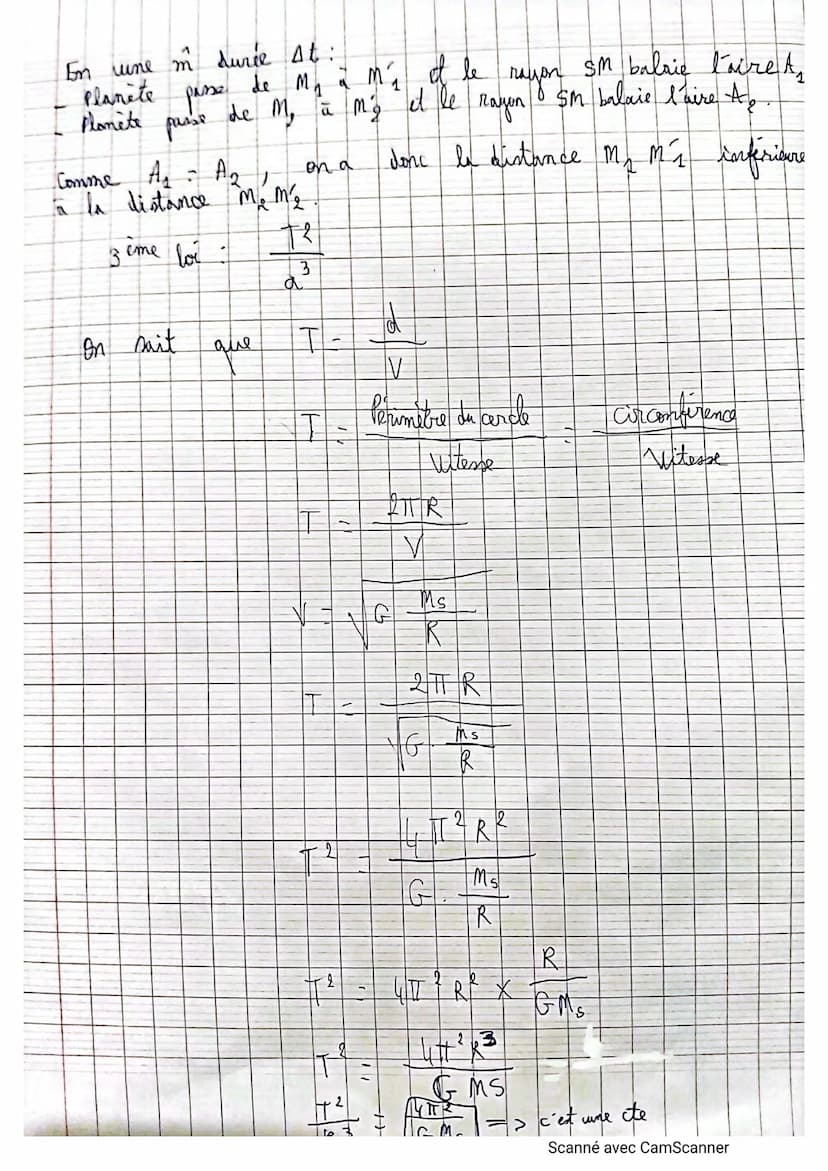 En une m̂ durée Δt :
- Planète passe de M₁ à M'₁ et le rayon SM balaie l'aire A₁
- Planète passe de M₂ à M'₂ et le rayon SM balaie l'aire A₂.
Comme A₁ = A₂, on a donc la distance M₁ M'₁ inférieure
à la distance M₂ M'₂.
3ème loi : T² / a³
On sait que T = d / V
T = Périmètre du cercle / Vitesse = circonférence / Vitesse
T = 2πR / V
V = √(G Ms / R)
T = 2πR / √(G . Ms / R)
T² = 4π²R² / (G . Ms / R)
T² = 4π²R² × R / GMs
T² = 4π²R³ / G MS
T² / R³ = 4π² / G Ms => c'est une cte
Scanné avec CamScanner